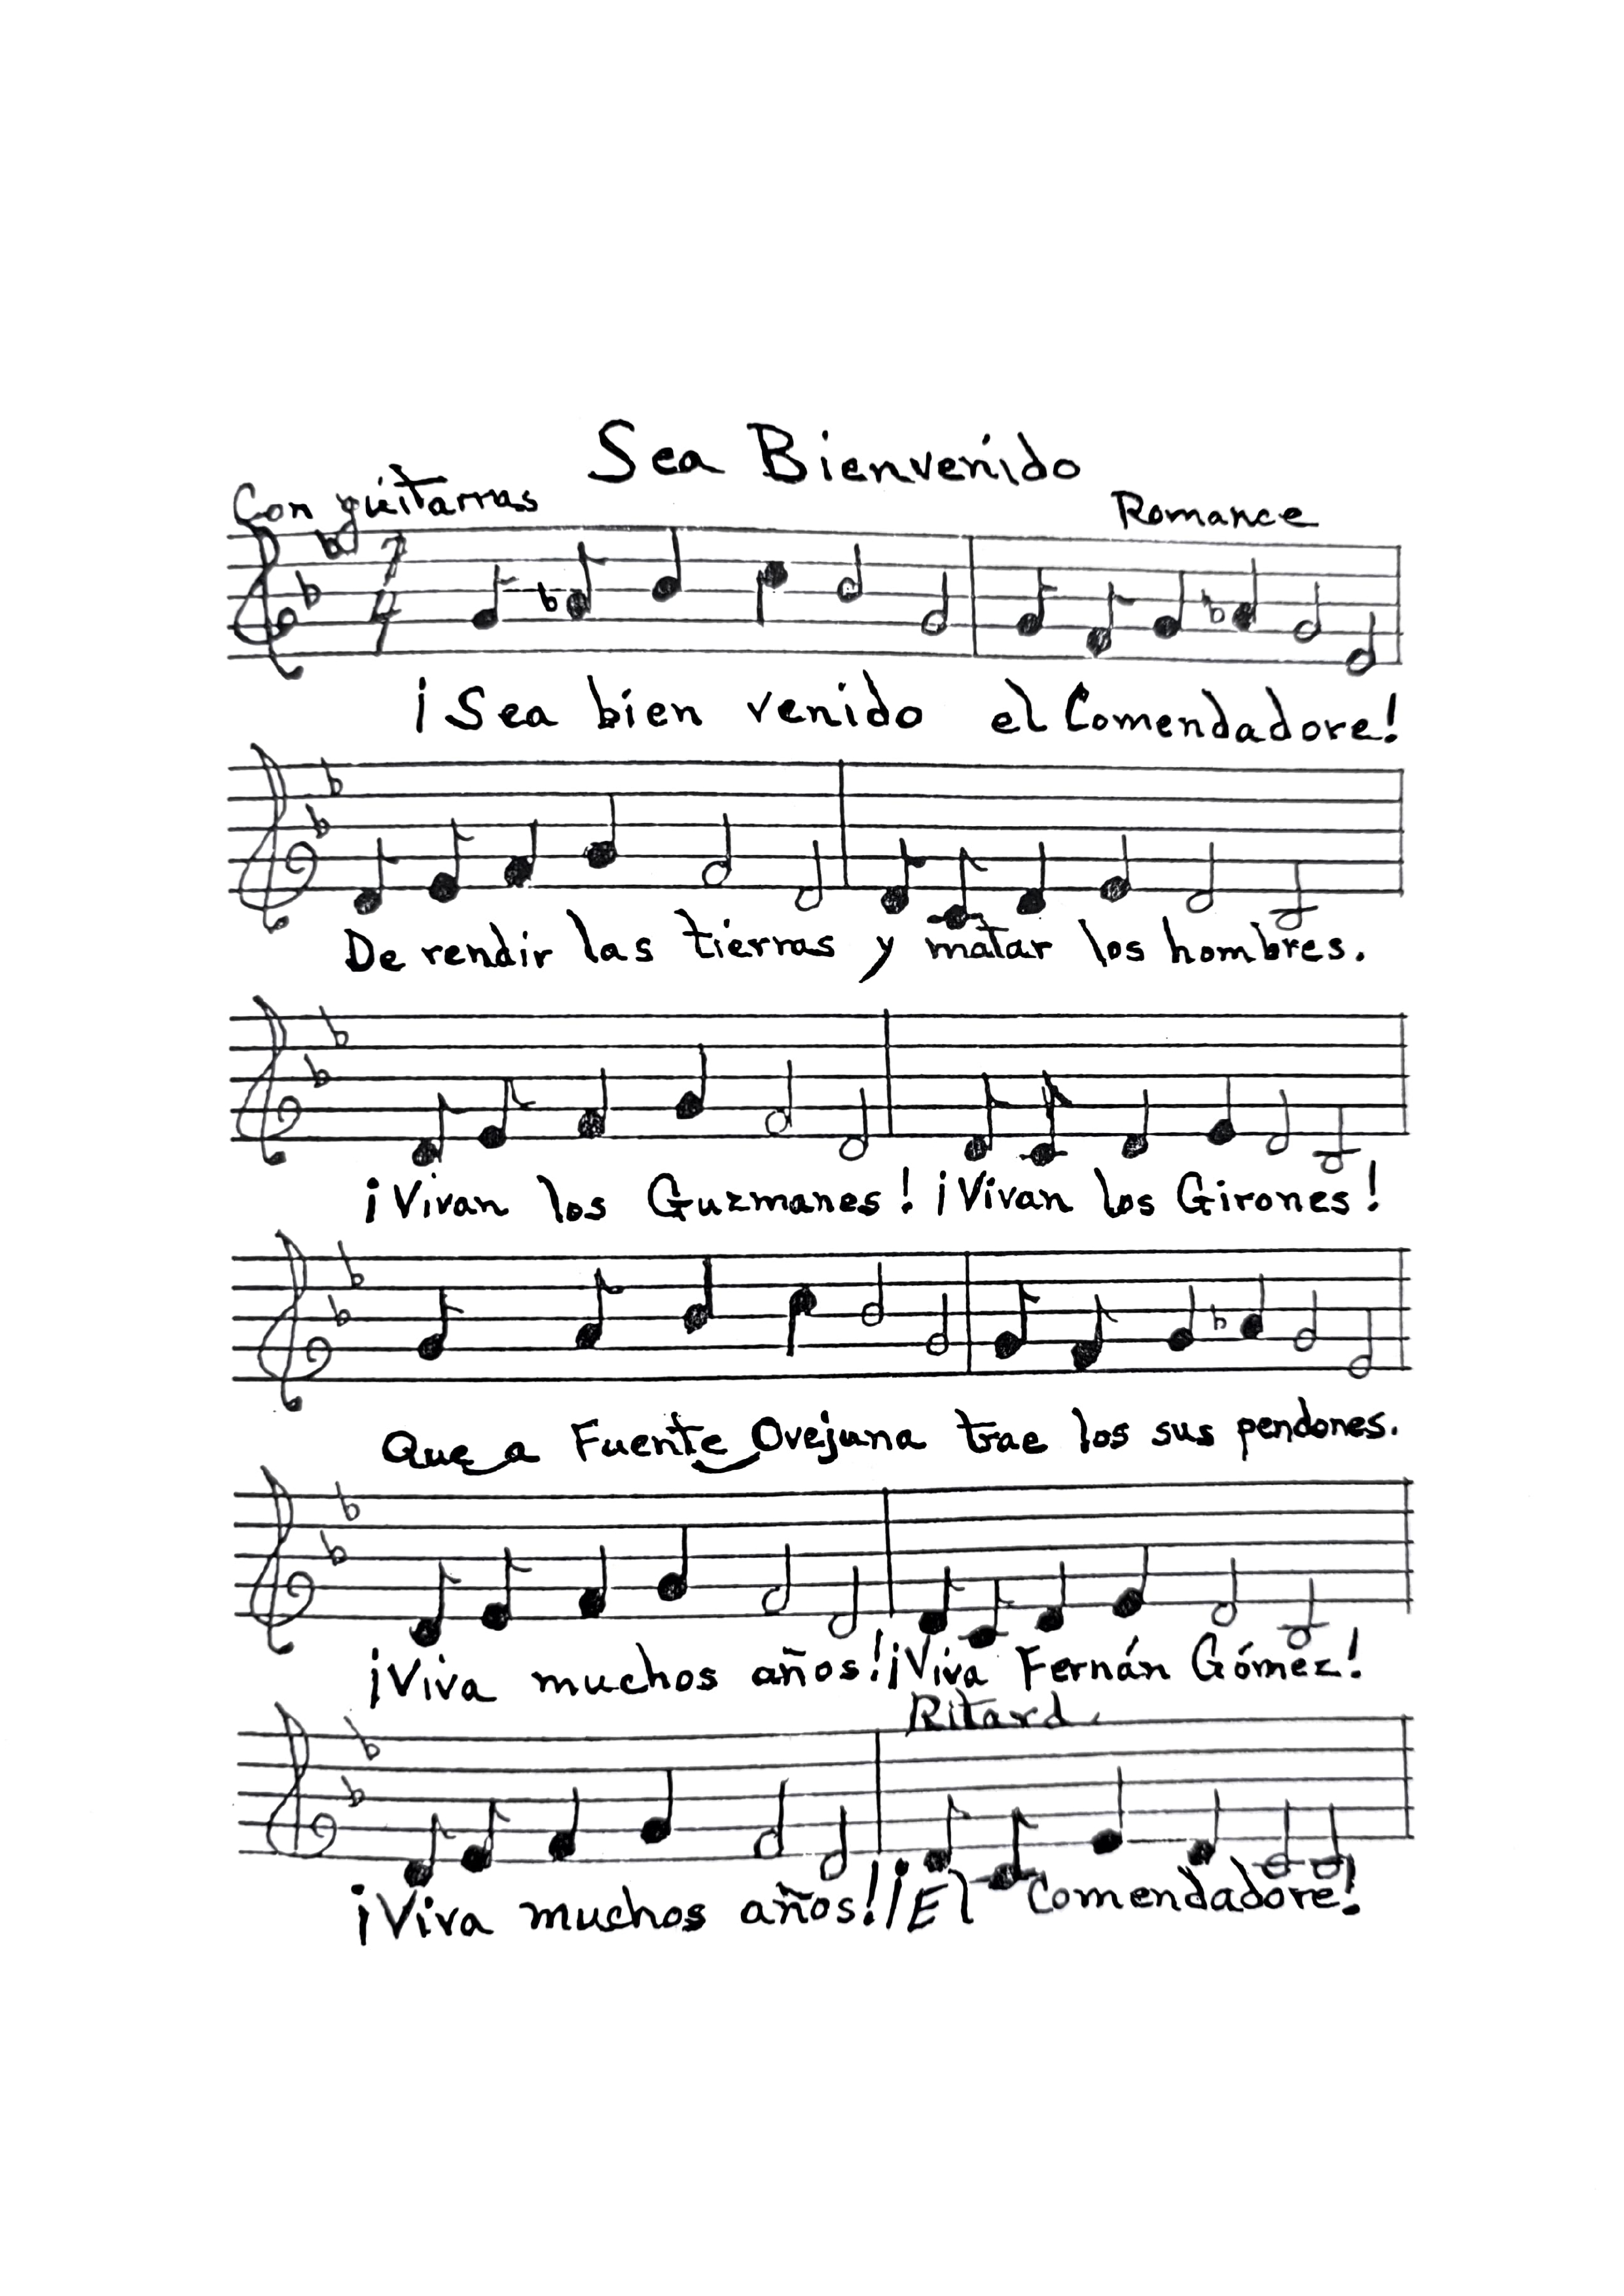 Sea Bienvenido
Con guitarras
Romance
7
4
¡Sea bien venido el Comendadore!
De rendir las tierras y matar los hombres.
¡Vivan los Guzmanes! ¡Vivan los Girones!
Que a Fuente Ovejuna trae los sus pendones.
¡Viva muchos años! ¡Viva Fernán Gómez!
Ritard.
¡Viva muchos años! ¡El Comendadore!